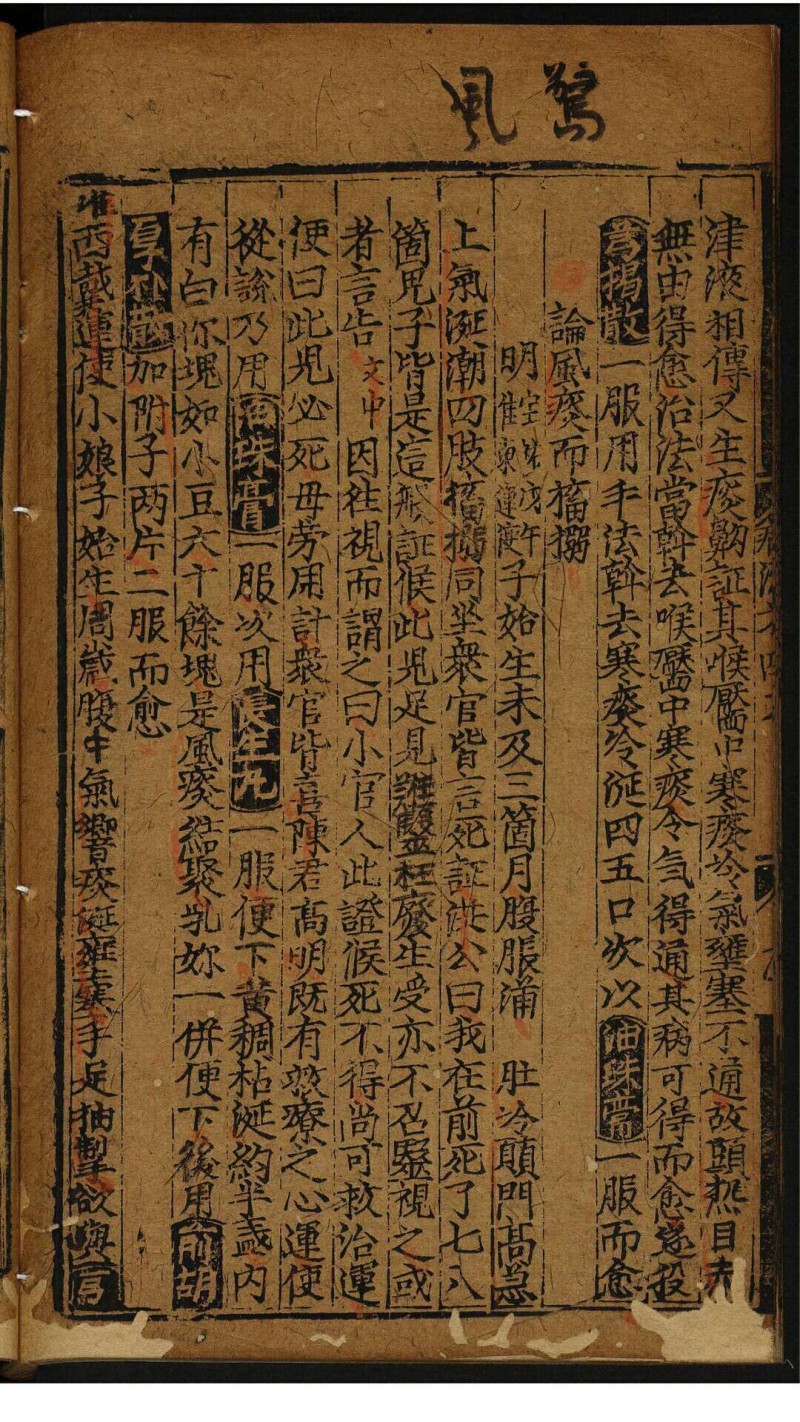 驚風
津液相傳又生痰齁証其喉靨中寒痰冷氣壅塞不通故頭热目赤
無由得愈治法當斡去喉靨中寒痰令气得通其病可得而愈遂投
褐散一服用手法斡去寒痰冷涎四五口次以油珠膏一服而愈
論風痰而搐搦
明宝祐戊午淮東運使子始生未及三箇月腹脹滿 肚冷顖門高急
上氣涎潮四肢搐搦同坐衆官皆言死証洪公曰我在前死了七八
箇児子皆是這般証候此児足見難醫枉廢生受亦不召毉視之或
者言告文中因往視而謂之曰小官人此證候死不得尚可救治運
使曰此児必死毋勞用計衆官皆言陳君高明既有救療之心運使
從說乃用油珠膏一服次用長生丸一服便下黄稠粘涎約半盞内
有白你塊如小豆六十餘塊是風痰結聚乳妳一併便下後用前胡
厚朴散加附子两片二服而愈
淮西戴運使小娘子始生周歲腹中氣響痰涎壅塞手足抽掣欲與